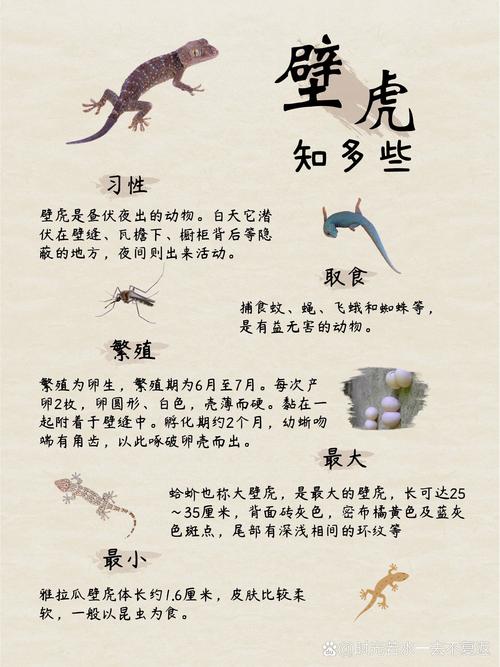 壁虎
知多些
习性
壁虎是昼伏夜出的动物。白天它潜
伏在壁缝、瓦檐下、橱柜背后等隐
蔽的地方，夜间则出来活动。
取食
捕食蚊、蝇、飞蛾和蜘蛛等，
是有益无害的动物。
繁殖
繁殖为卵生，繁殖期为6月至7月。每次产
卵2枚，卵圆形、白色，壳薄而硬。黏在一
起附着于壁缝中。孵化期约2个月，幼蜥吻
端有角齿，以此啄破卵壳而出。
最大
蛤蚧也称大壁虎，是最大的壁虎，长可达25
～35厘米，背面砖灰色，密布橘黄色及蓝灰
色斑点，尾部有深浅相间的环纹等
最小
雅拉瓜壁虎体长约1.6厘米，皮肤比较柔
软，一般以昆虫为食。
Bai百科@时光若水一去不复返